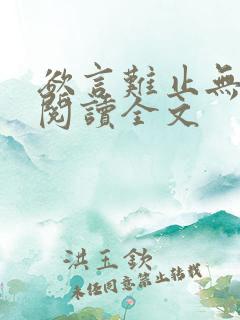 欲言難止無
閱讀全文
洪玉欽
未经同意禁止转载